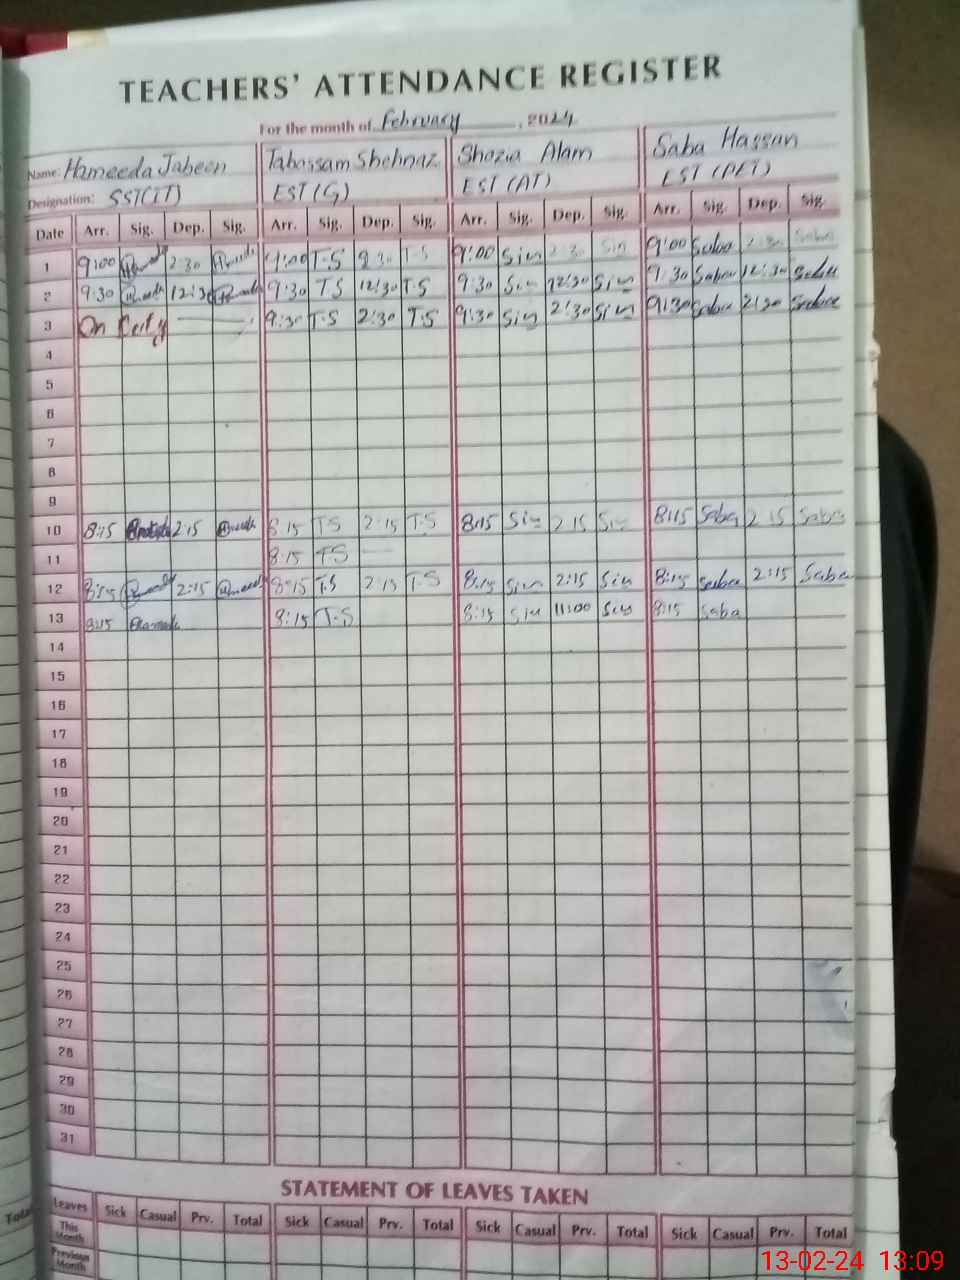 TEACHERS' ATTENDANCE REGISTER
For the month of February, 2024
Name: Hameeda Jabeen Tabassam Shehnaz Shazia Alam Saba Hassan
Designation: SST(IT) EST(G) EST (AT) EST (PET)
Date Arr. Sig. Dep. Sig. Arr. Sig. Dep. Sig. Arr. Sig. Dep. Sig. Arr. Sig. Dep. Sig.
1 9:00 2:30 9:00 T-S 2:30 T-S 9:00 2:30 9:00 Saba 2:30 Saba
2 9:30 12:30 9:30 TS 12:30 T-S 9:30 12:30 9:30 Saba 12:30 Saba
3 On 9:30 T-S 2:30 T-S 9:30 2:30 9:30 Saba 2:30
4
5
6
7
8
9
10 8:15 2:15 8:15 T-S 2:15 T-S 8:15 2:15 8:15 Saba 2:15 Saba
11 8:15 TS
12 8:15 2:15 8:15 T-S 2:15 T-S 8:15 2:15 8:15 Saba 2:15 Saba
13 8:15 8:15 T-S 8:15 11:00 8:15 Saba
14
15
16
17
18
19
20
21
22
23
24
25
26
27
28
29
30
31
STATEMENT OF LEAVES TAKEN
Leaves Sick Casual Prv. Total Sick Casual Prv. Total Sick Casual Prv. Total Sick Casual Prv. Total
This Month
Previous Month
Total
13-02-24 13:09